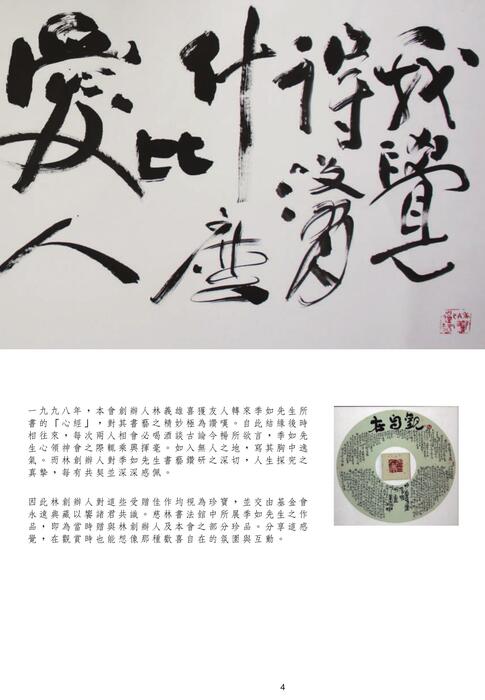 我覺
得沒有
什麼
比
愛人
一九九八年，本會創辦人林義雄喜獲友人轉來季如先生所
書的「心經」，對其書藝之精妙極為讚嘆。自此結緣後時
相往來，每次兩人相會必喝酒談古論今暢所欲言，季如先
生心領神會之際輒乘興揮毫。如入無人之地，寫其胸中逸
氣。而林創辦人對季如先生書藝鑽研之深切，人生探究之
真摯，每有共契並深深感佩。
因此林創辦人對這些受贈佳作均視為珍寶，並交由基金會
永遠典藏以饗諸君共識。慈林書法館中所展季如先生之作
品，即為當時贈與林創辦人及本會之部分珍品。分享這感
覺，在觀賞時也能想像那種歡喜自在的氛圍與互動。
觀自在
4